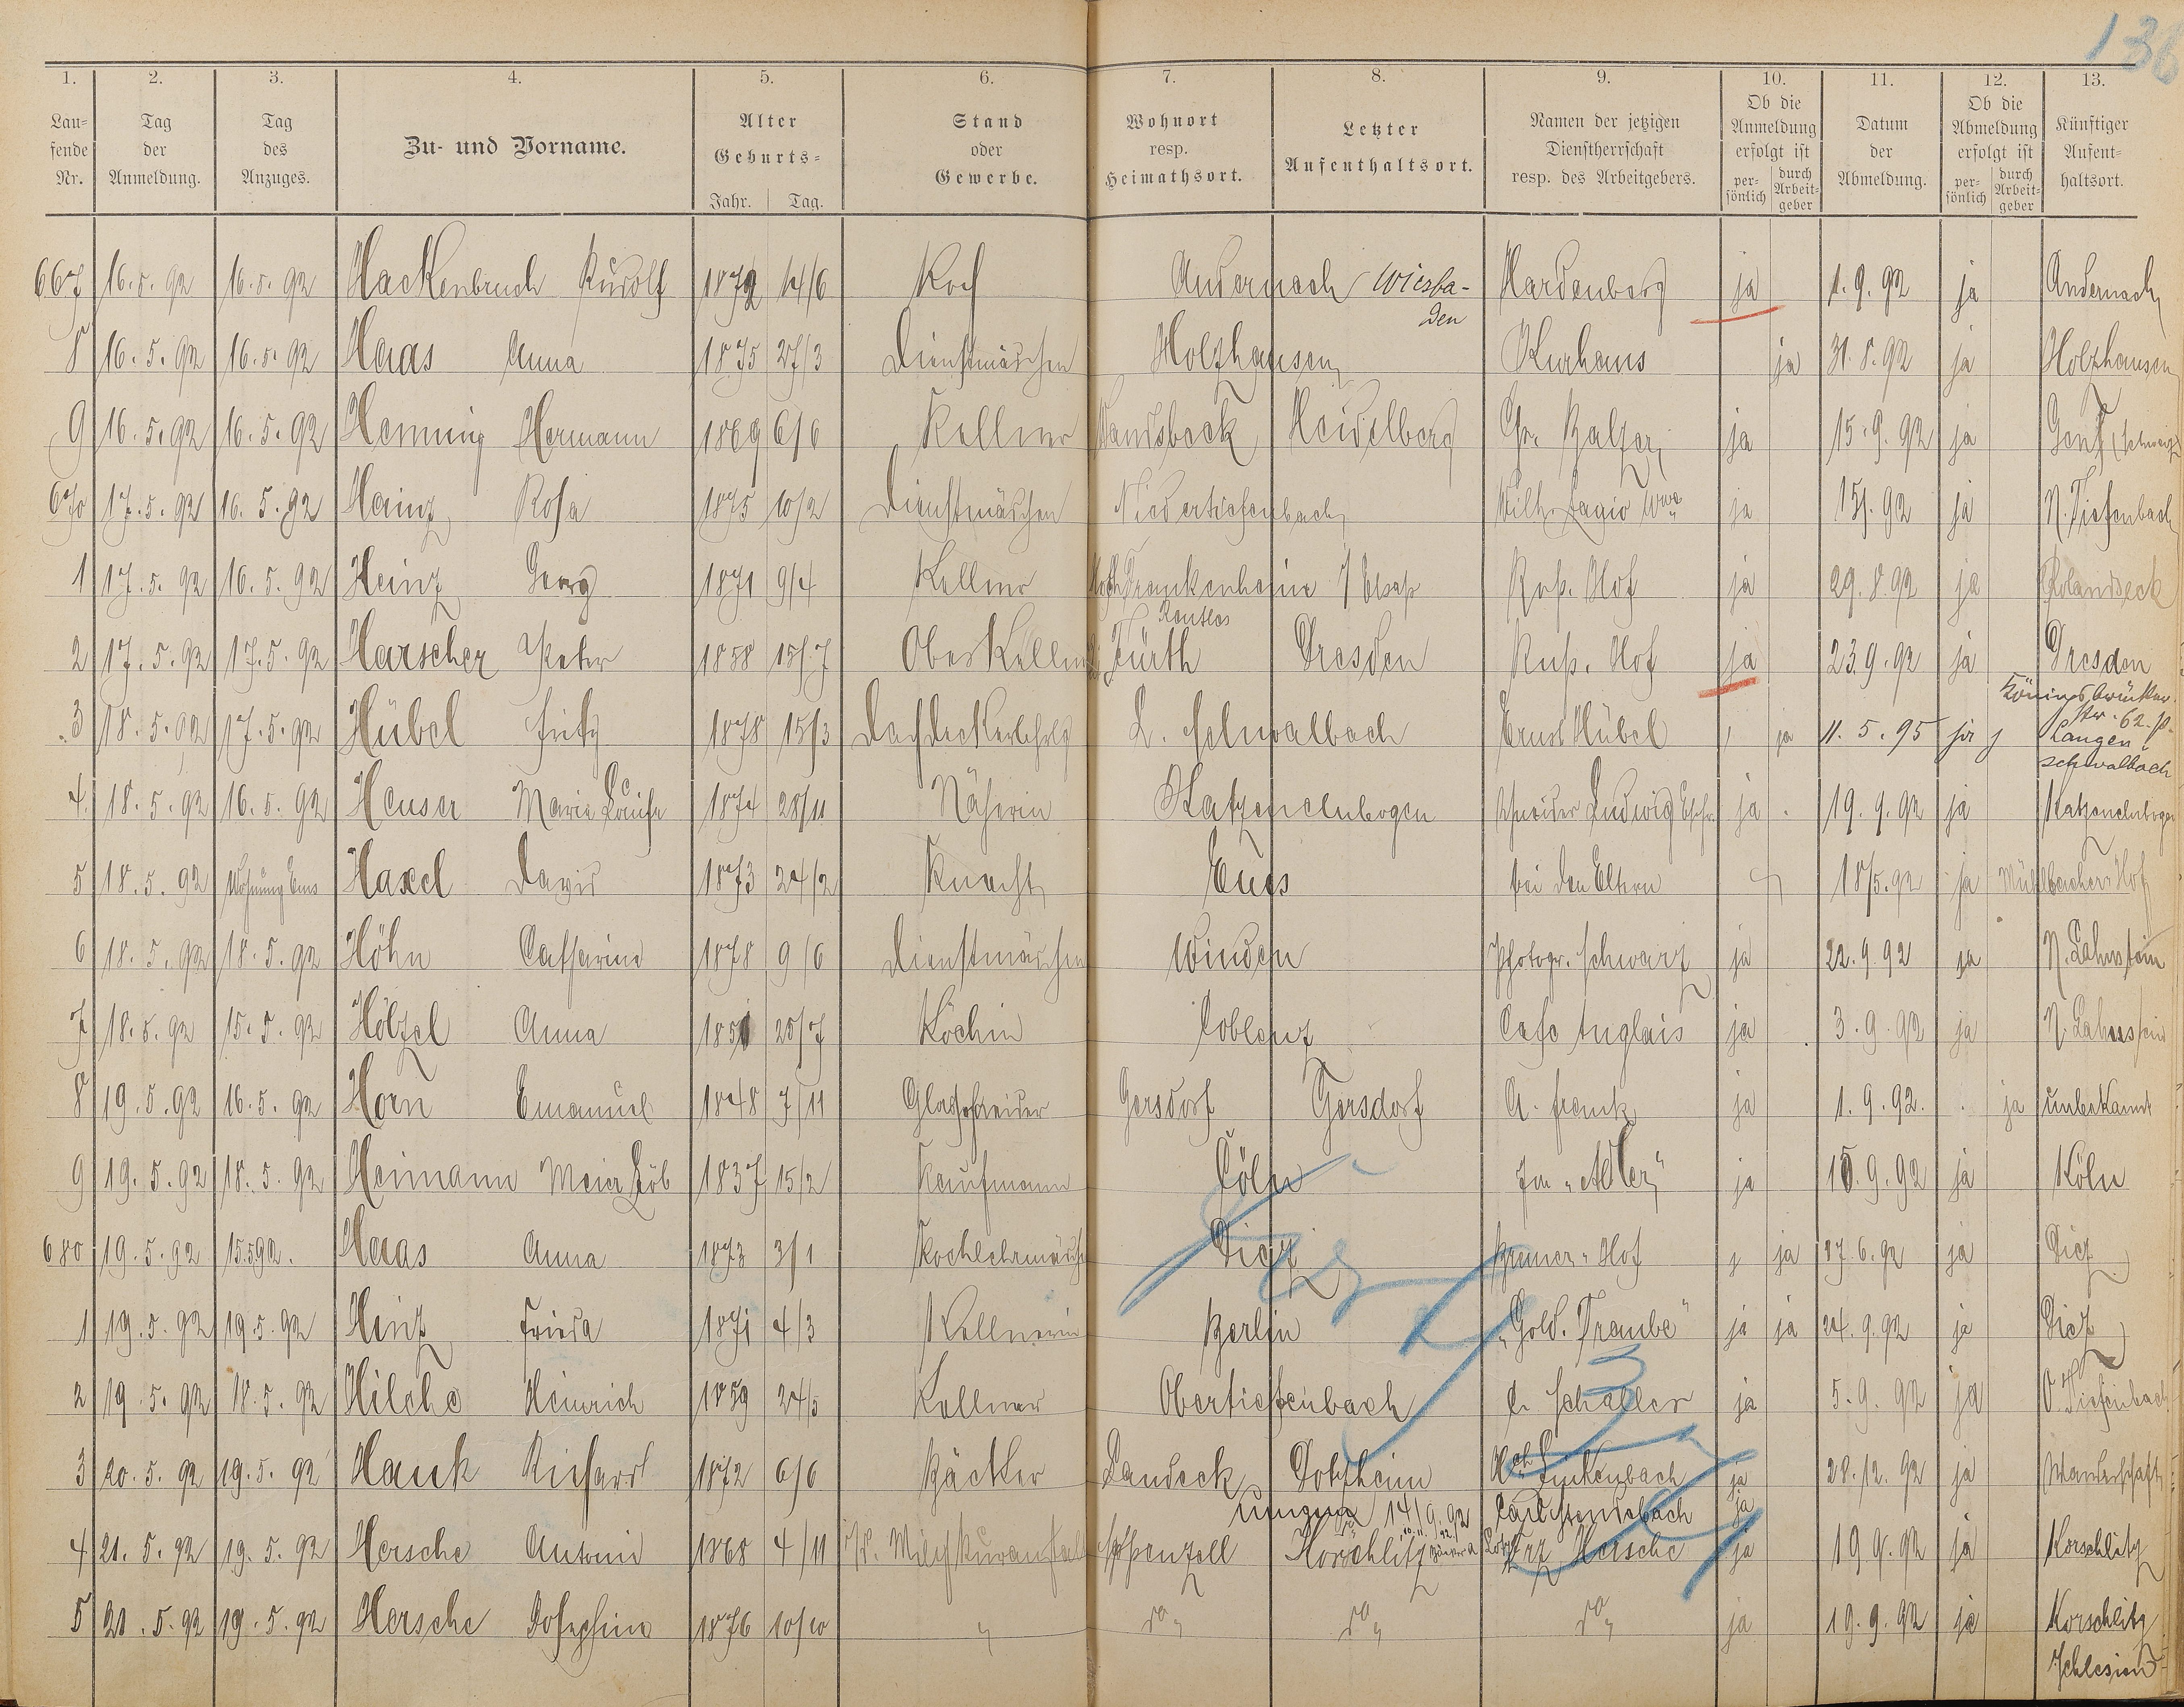 136
1. 2. 3. 4. 5. 6. 7. 8. 9. 10. 11. 12. 13.
Lau-
fende
Nr.
Tag
der
Anmeldung.
Tag
des
Anzuges.
Zu- und Vorname.
Alter
Geburts-
Jahr. Tag.
Stand
oder
Gewerbe.
Wohnort
resp.
Heimathsort.
Letzter
Aufenthaltsort.
Namen der jetzigen
Dienstherrschaft
resp. des Arbeitgebers.
Ob die
Anmeldung
erfolgt ist
per-
sönlich
durch
Arbeit-
geber
Datum
der
Abmeldung.
Ob die
Abmeldung
erfolgt ist
per-
sönlich
durch
Arbeit-
geber
Künftiger
Aufent-
haltsort.
667 16.5.92 16.5.92 Hackenbruch Rudolf 1872 14/6 Koch Andernach Wiesba-
den Hardenberg ja 1.9.92 ja Andernach
8 16.5.92 16.5.92 Haas Anna 1875 27/3 Dienstmädchen Holzhausen Kurhaus ja 31.8.92 ja Holzhausen
9 16.5.92 16.5.92 Henning Hermann 1869 6/6 Kellner Wandsbeck Heidelberg Chr. Balzer ja 15.9.92 ja Genf (Schweiz
670 17.5.92 16.5.92 Hainz Rosa 1875 10/2 Dienstmädchen Niedertiefenbach Wilh. Wwe ja 15/.92 ja N. Tiefenbach
1 17.5.92 16.5.92 Heinz Georg 1871 9/4 Kellner Frankenheim / Elsaß Ruß. Hof ja 29.8.92 ja Rolandseck
2 17.5.92 17.5.92 Harscher Peter 1858 15/7 Oberkellner Fürth Dresden Ruß. Hof ja 23.9.92 ja Dresden
Königsbrücker
str. 62. p.
3 18.5.92 17.5.92 Hübel Fritz 1878 15/3 Dachdeckerlehrlg L. Schwalbach Ernst Hübel ja 11.5.95 ja Langen
schwalbach
4 18.5.92 16.5.92 Heuser Marie Louise 1874 28/11 Näherin Katzenelnbogen Schneider Ludwig ja 19.9.92 ja Katzenelnbogen
5 18.5.92 Wohnung Ems Haxel David 1873 24/2 Knecht Ems bei den Eltern " 18/5.92 ja Mühlbacher Hof
6 18.5.92 18.5.92 Höhn Catharine 1878 9/6 Dienstmädchen Winden Photogr. Schwarz ja 22.9.92 ja N. Lahnstein
7 18.5.92 15.5.92 Hölzel Anna 1851 25/7 Köchin Coblenz Cafe Anglais ja 3.9.92 ja N. Lahnstein
8 19.5.92 16.5.92 Horn Emanuel 1848 7/11 Glasschneider Gersdorf Gersdorf A. Frank ja 1.9.92. ja unbekannt
9 19.5.92 18.5.92 Heimann Meier Löb 1837 15/2 Kaufmann Cöln Im "Adler" ja 15.9.92 ja Köln
680 19.5.92 15.5.92. Haas Anna 1873 3/1 Kochlehrmädch Diez Hof ja 17.6.92 ja Diez
1 19.5.92 19.5.92 Hinz Frieda 1871 4/3 Kellnerin Berlin "Gold. Traube" ja ja 24.9.92 ja Diez
2 19.5.92 18.5.92 Hilche Heinrich 1859 24/5 Kellner Obertiefenbach Schaller ja 5.9.92 ja O. Tiefenbach
3 20.5.92 19.5.92 Hauck Richard 1872 6/6 Bäcker Landeck Dotzheim Hch Linkenbach ja 28.12.92 ja Wanderschaft
14/9.92 Carl ja
4 21.5.92 19.5.92 Hersche Antonie 1868 4/11 Appenzell Korschlitz Frz Hersche ja 19.9.92 ja Korschlitz
5 21.5.92 19.5.92 Hersche Josephine 1876 10/10 " do do do ja 19.9.92 ja Korschlitz
Schlesien